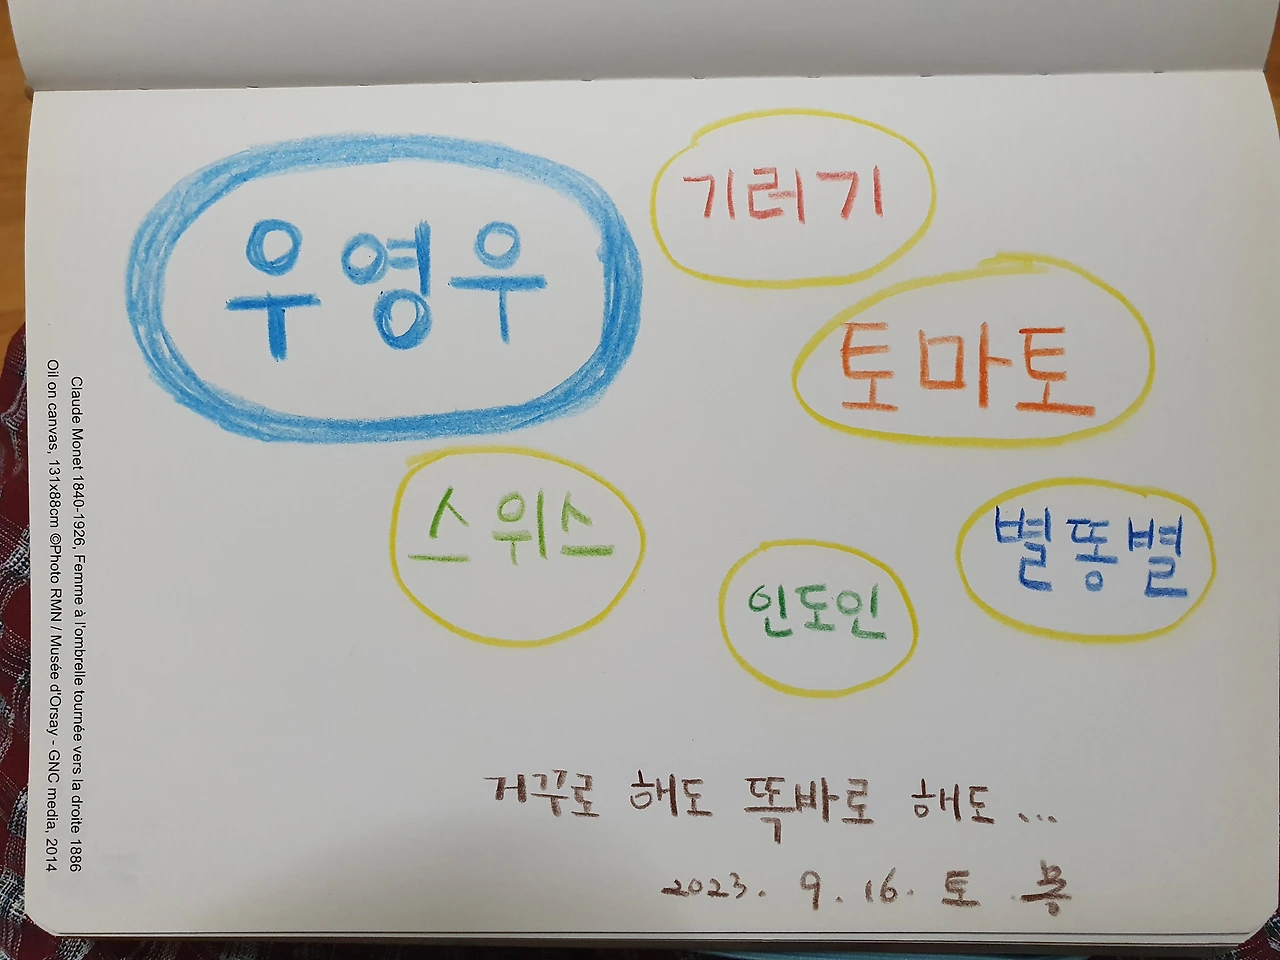 우영우
기러기
토마토
스위스
인도인
별똥별
거꾸로 해도 똑바로 해도...
2023. 9. 16. 토
Claude Monet 1840-1926, Femme à l'ombrelle tournée vers la droite 1886
Oil on canvas, 131x88cm ©Photo RMN / Musée d'Orsay - GNC media, 2014